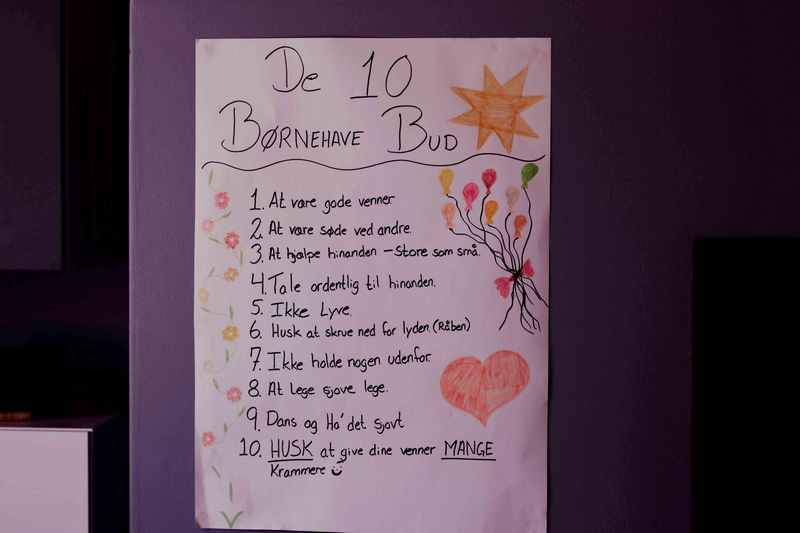 De 10
BØRNEHAVE BUD
1. At være gode venner
2. At være søde ved andre.
3. At hjælpe hinanden – Store som små.
4. Tale ordentlig til hinanden.
5. Ikke Lyve.
6. Husk at skrue ned for lyden. (Råben)
7. Ikke holde nogen udenfor.
8. At Lege sjove lege.
9. Dans og Ha' det sjovt
10. HUSK at give dine venner MANGE
Krammere